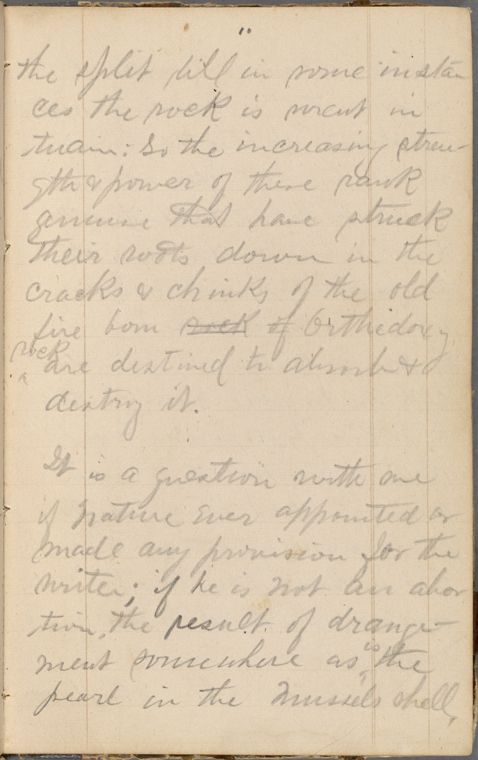 "
the split till in some instan
ces the rock is rent in
twain: So the increasing stren-
gth & power of these rank
that have struck
their roots down in the
cracks & chinks of the old
fire born rock of Orthodoxy
rock
are destined to absorb &
destroy it.
It is a question with me
if Nature ever appointed or
made any provision for the
writer; if he is not an abor
tion, the result of drange-
ment somewhere as is the
pearl in the mussels shell,